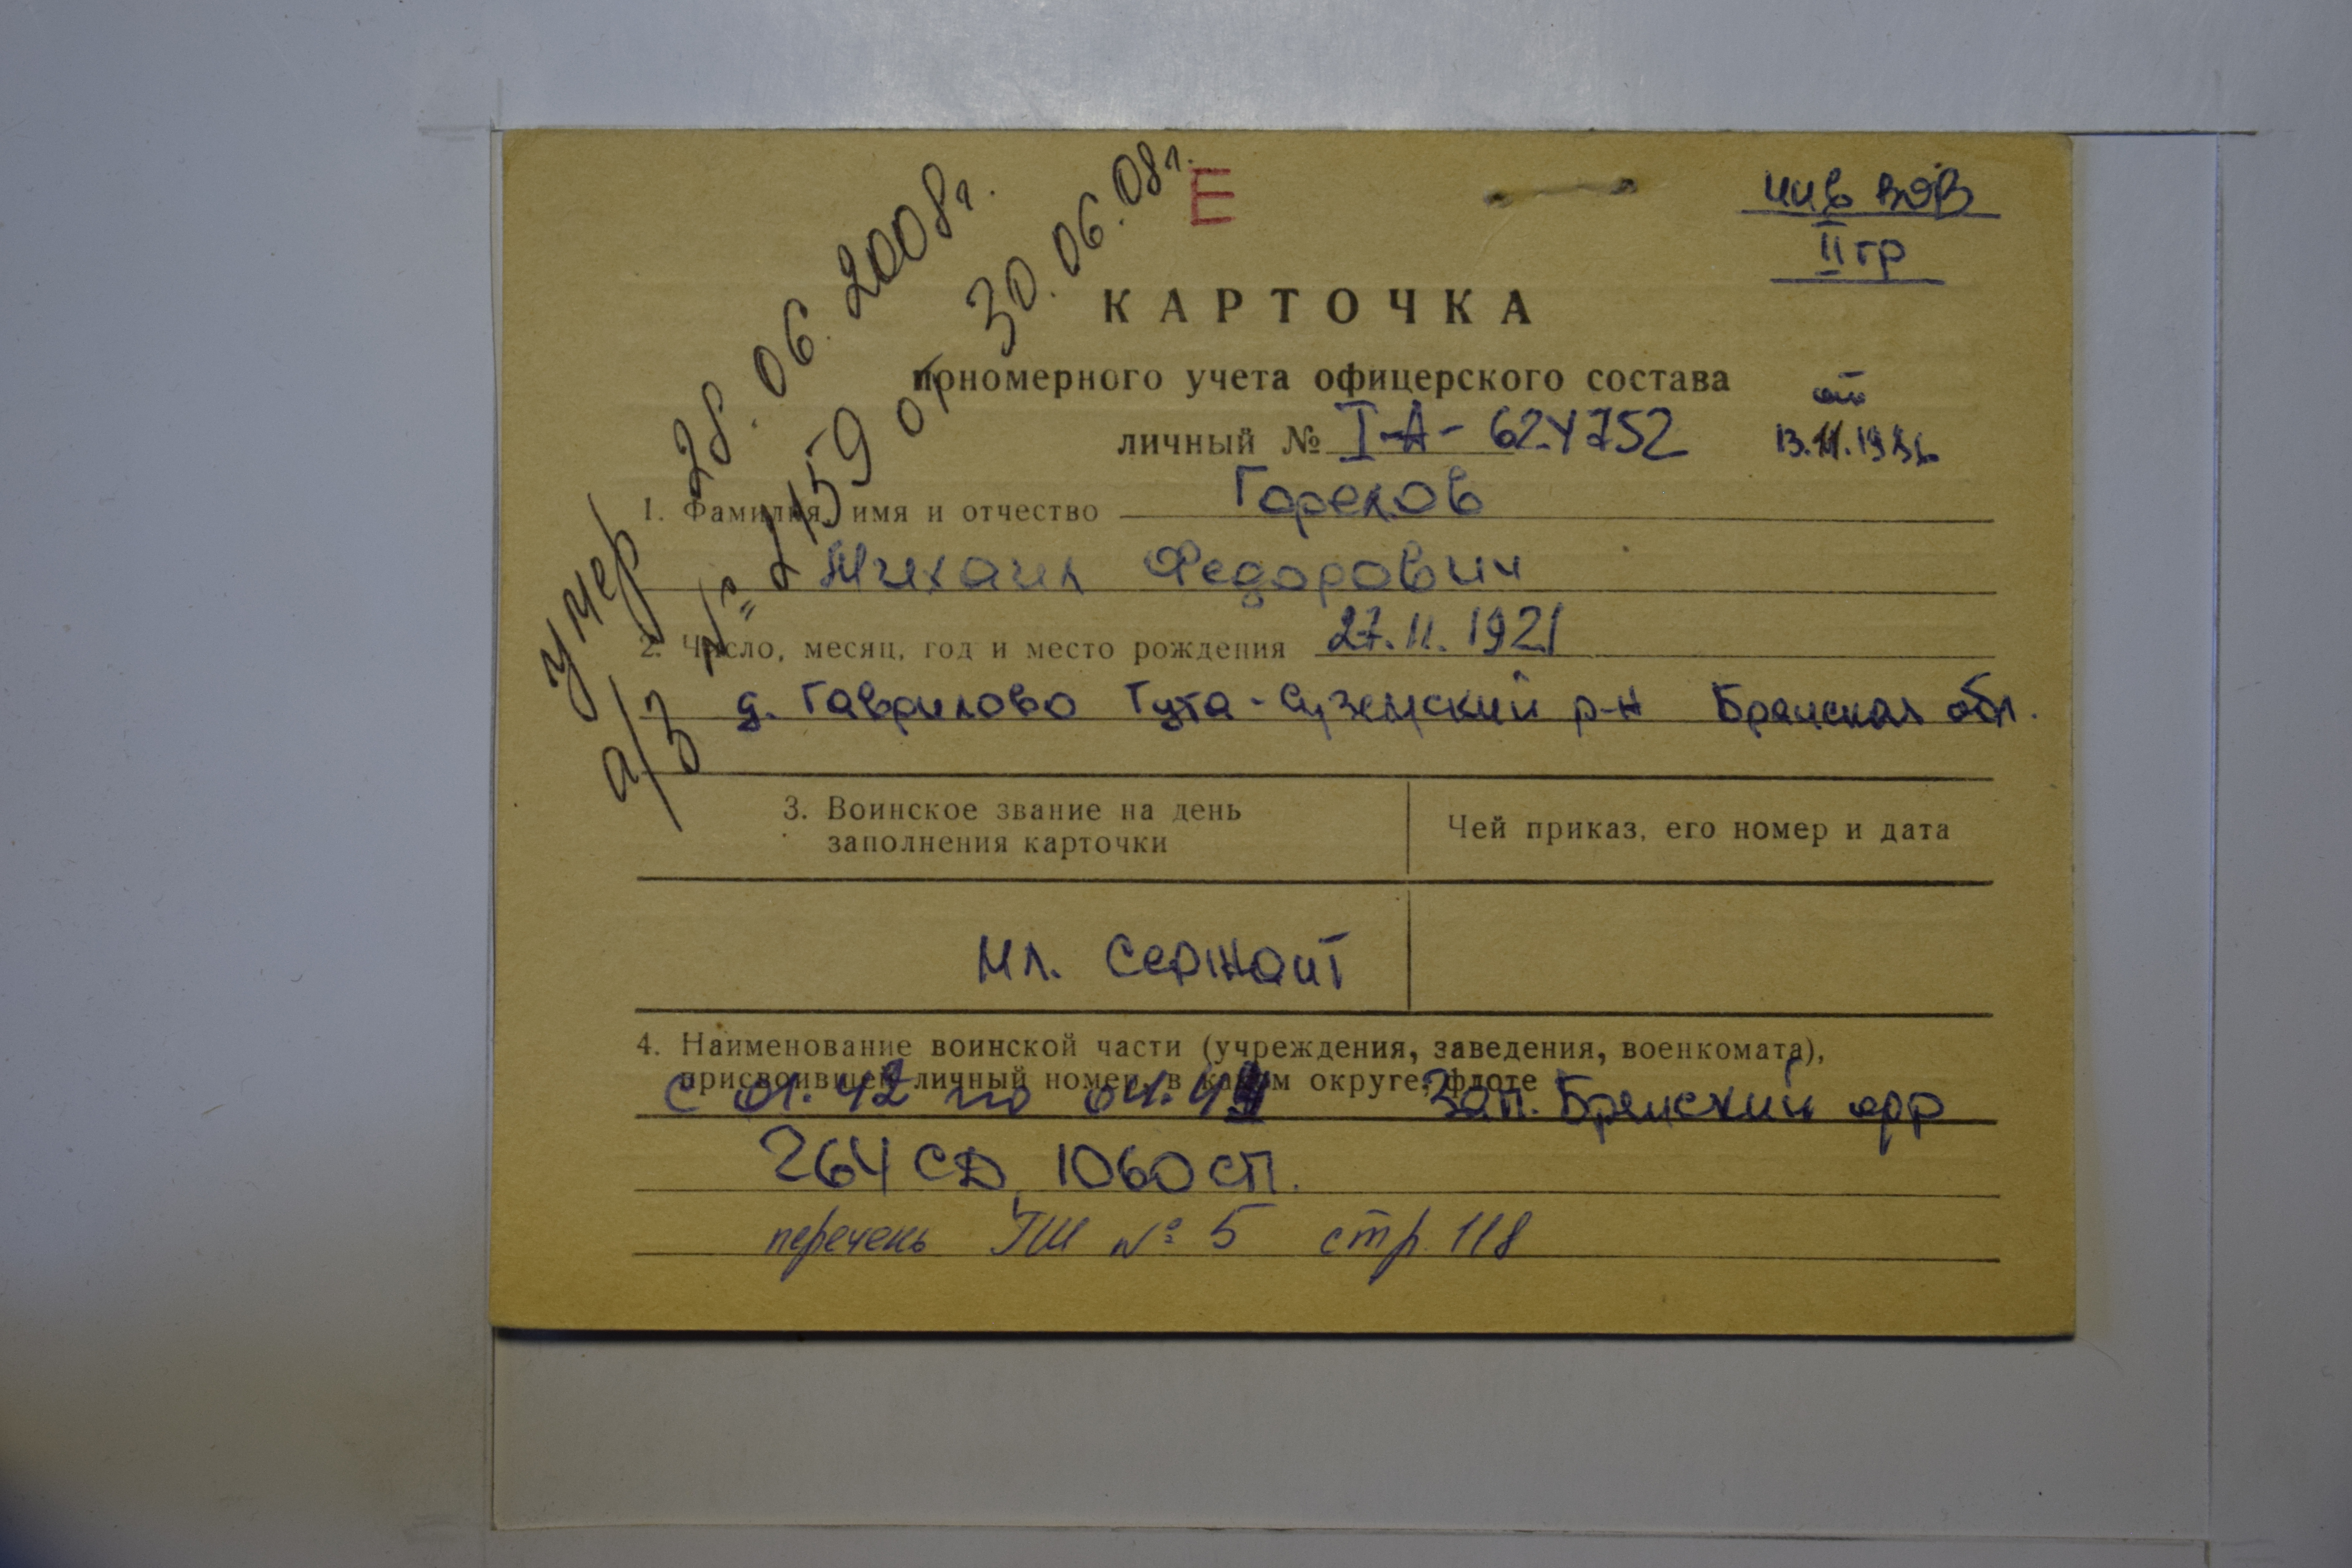 умер 28.06.2008г.
а/з № 2159 от 30.06.08г.
Е
инв ВОВ
II гр
КАРТОЧКА
прономерного учета офицерского состава
от
личный № I-А- 624752
1. Фамилия, имя и отчество Горелов
Михаил Федорович
2. Число, месяц, год и место рождения 27.11.1921
д. Гаврилово Гута-Суземский р-н Брянская обл.
3. Воинское звание на день
заполнения карточки
Чей приказ, его номер и дата
Мл. сержант
4. Наименование воинской части (учреждения, заведения, военкомата),
присвоившей личный номер, в каком округе, флоте
с 01.42 по Зап. Брянский фр
264 СД, 1060 СП.
перечень ГШ № 5 стр. 118